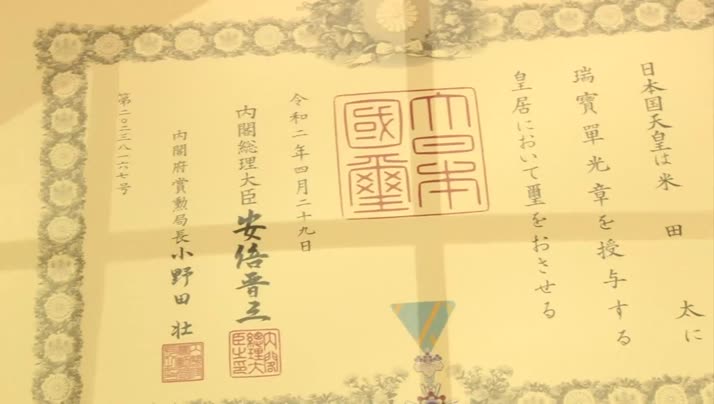 日本国天皇は米田太に
瑞寶單光章を授与する
皇居において璽をおさせる
大日本國璽
令和二年四月二十九日
内閣総理大臣安倍晋三
内閣総理大臣之印
内閣府賞勲局長小野田壮
第二〇二三八一六七号